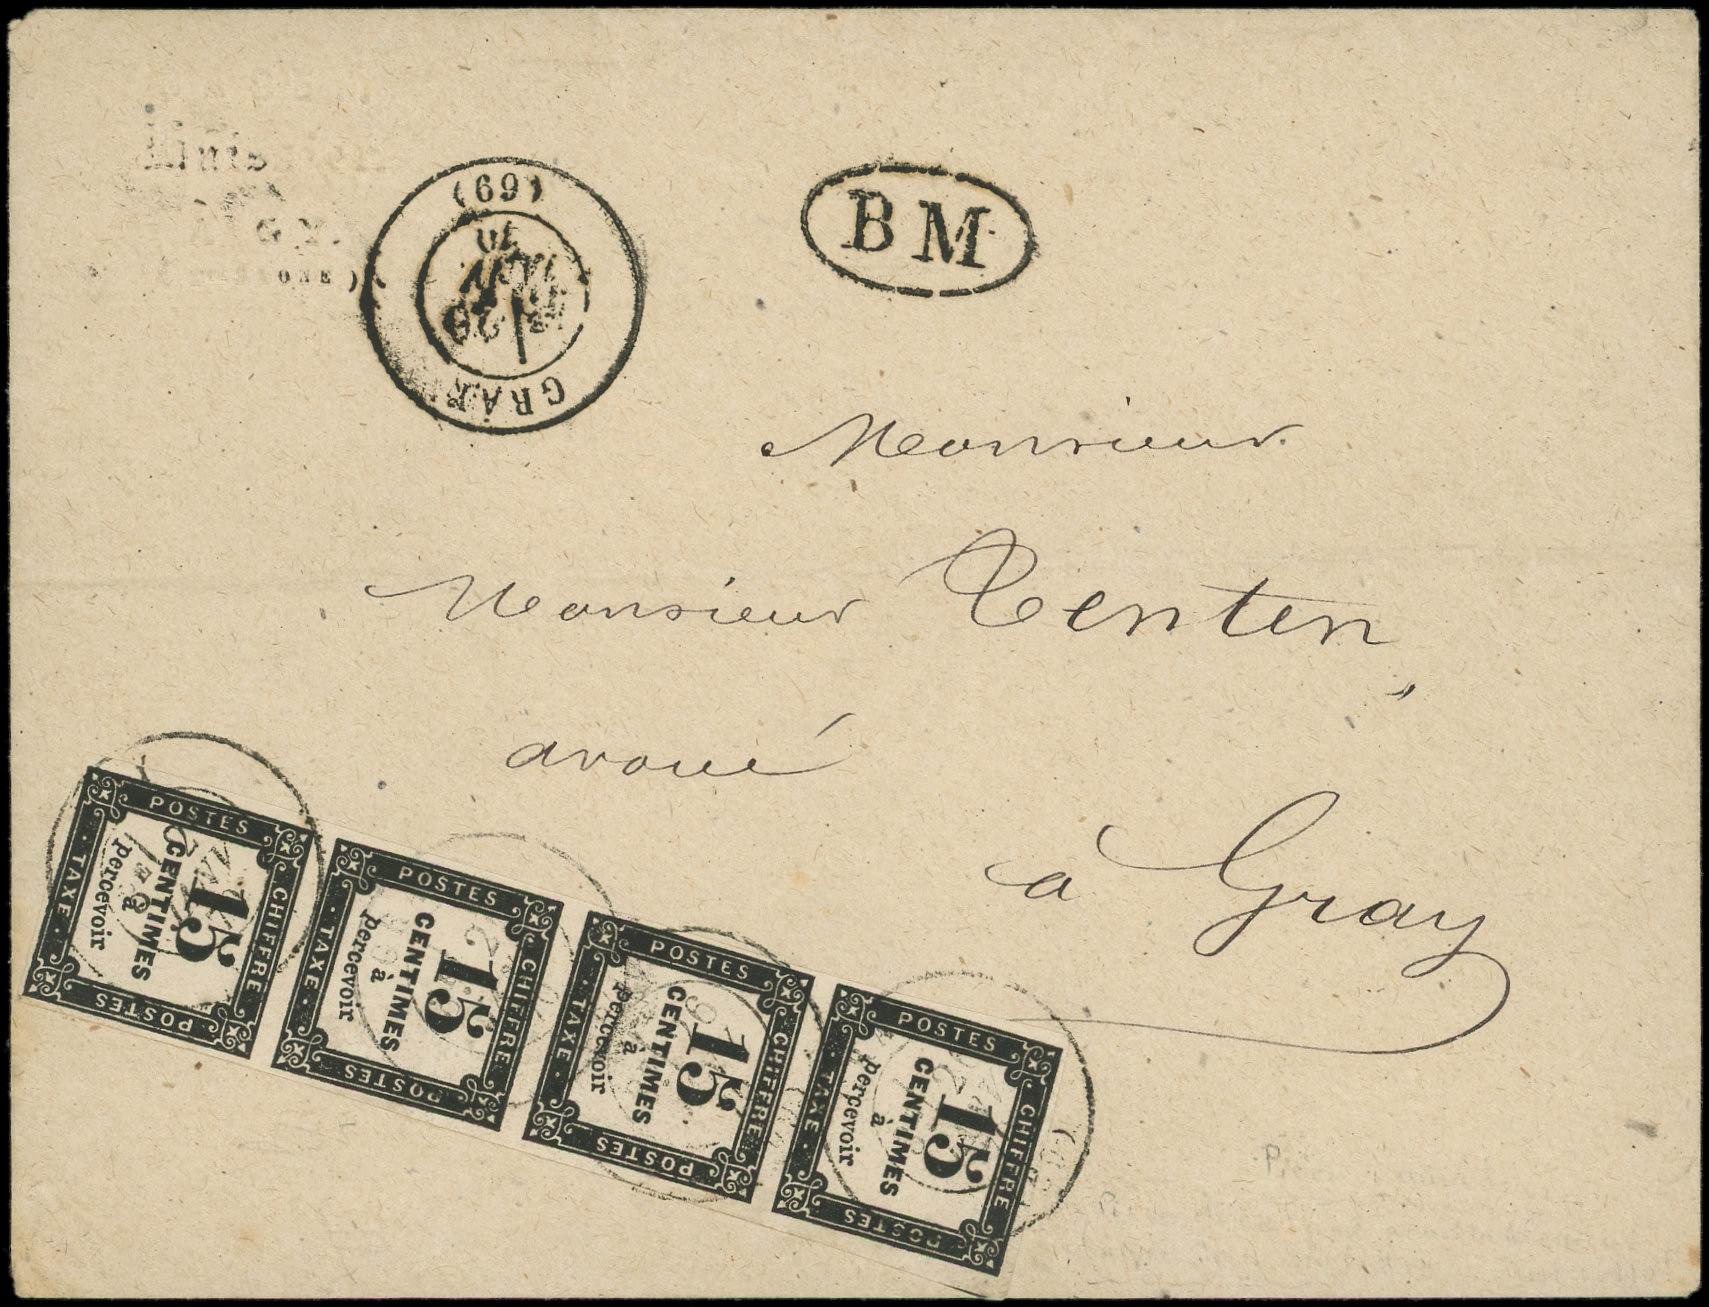 BM
(69)
70
GRAY
Monsieur
Monsieur Tentin,
avoué
à Gray
POSTES
CHIFFRE
TAXE
POSTES
15
CENTIMES
à
percevoir
POSTES
CHIFFRE
TAXE
POSTES
15
CENTIMES
à
percevoir
POSTES
CHIFFRE
TAXE
POSTES
15
CENTIMES
à
percevoir
POSTES
CHIFFRE
TAXE
POSTES
15
CENTIMES
à
percevoir